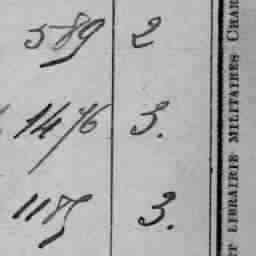 589 2
1476 3.
1185 3.
ET LIBRAIRIE MILITAIRES CHAR